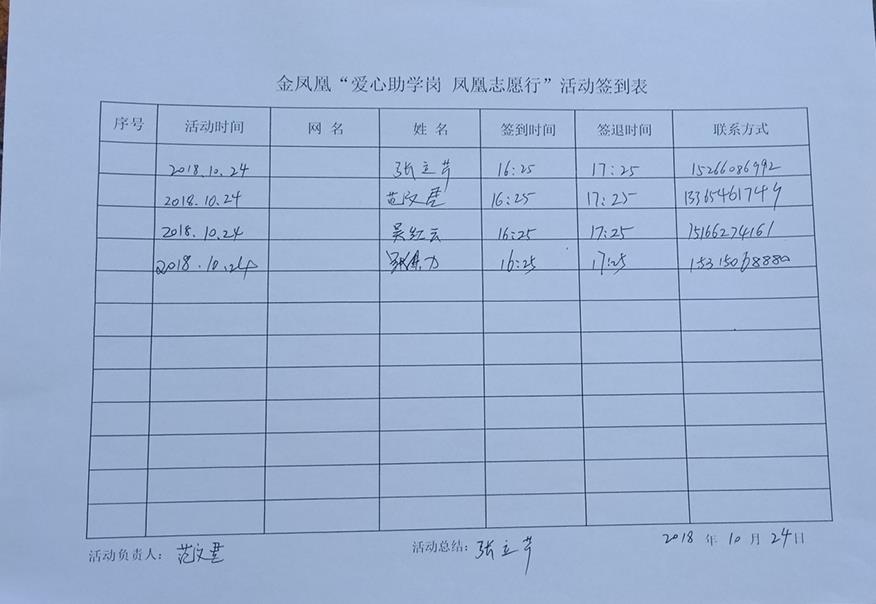 金凤凰“爱心助学岗 凤凰志愿行”活动签到表
序号 活动时间 网 名 姓 名 签到时间 签退时间 联系方式
2018.10.24 张立芹 16:25 17:25 15266086992
2018.10.24 范文君 16:25 17:25 13365461749
2018.10.24 吴红云 16:25 17:25 15166274161
2018.10.24 16:25 17:25
活动负责人: 范文君 活动总结: 张立芹 2018 年 10 月 24 日